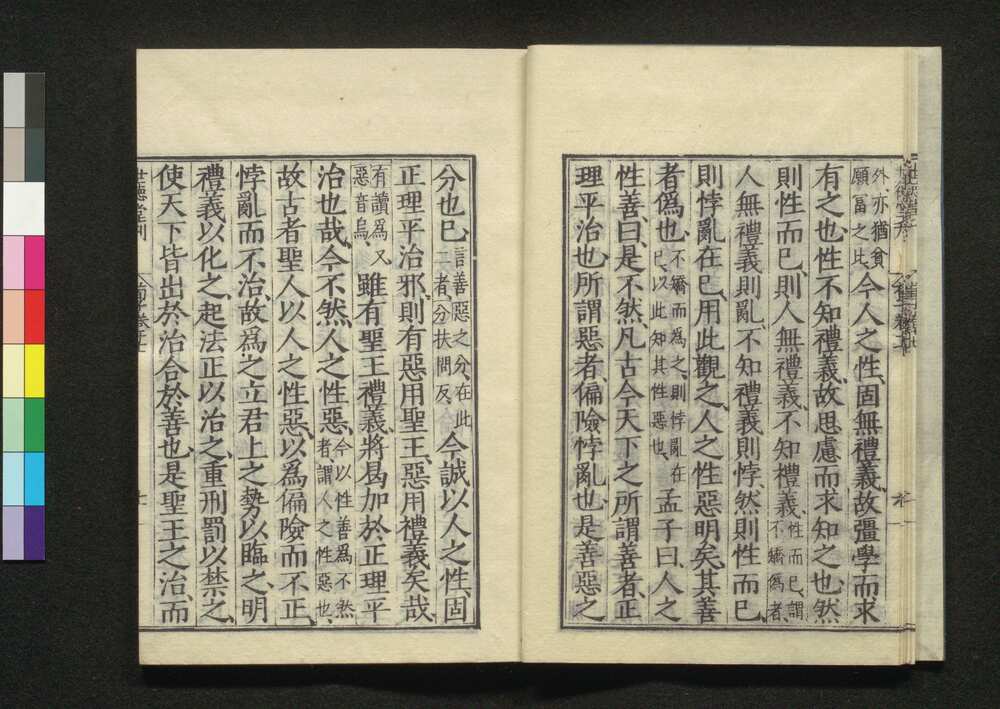 外、亦猶貪願富之比、今人之性、固無禮義、故彊學而求
有之也、性不知禮義、故思慮而求知之也、然
則性而已、則人無禮義、不知禮義、性而已、謂不矯僞者、
人無禮義則亂、不知禮義則悖、然則性而已、
則悖亂在已、用此觀之、人之性惡明矣、其善
者僞也、不矯而為之、則悖亂在已、以此知其性惡也、孟子曰、人之
性善、曰、是不然、凡古今天下之所謂善者、正
理平治也、所謂惡者、偏險悖亂也、是善惡之
分也已、言善惡之分、在此二者、分扶問反、今誠以人之性、固
正理平治邪、則有惡用聖王、惡用禮義矣哉
有讀為又惡音烏、雖有聖王禮義、將曷加於正理平
治也哉、今不然、人之性惡、今以性善為不然者、謂人之性惡也、
故古者聖人以人之性惡、以爲偏險而不正、
悖亂而不治、故爲之立君上之勢以臨之、明
禮義以化之、起法正以治之、重刑罰以禁之、
使天下皆出於治、合於善也、是聖王之治、而
世德堂刊